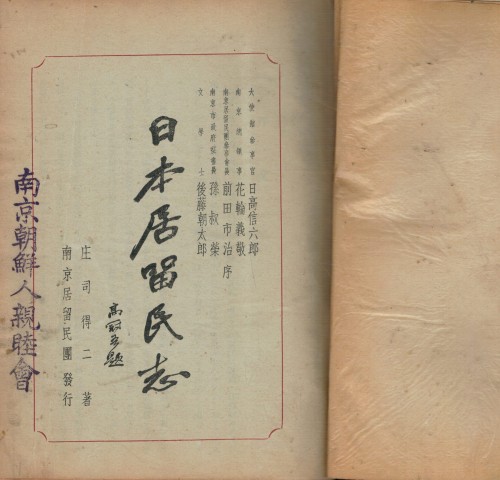 大使館參事官 日高信六郎
南京總領事 花輪義敬
南京居留民團參事會長 前田市治 序
南京市政府祕書長 孫叔榮
文學士 後藤朝太郎
日本居留民志
高冠吾題
庄司得二著
南京居留民團發行
南京朝鮮人親睦會